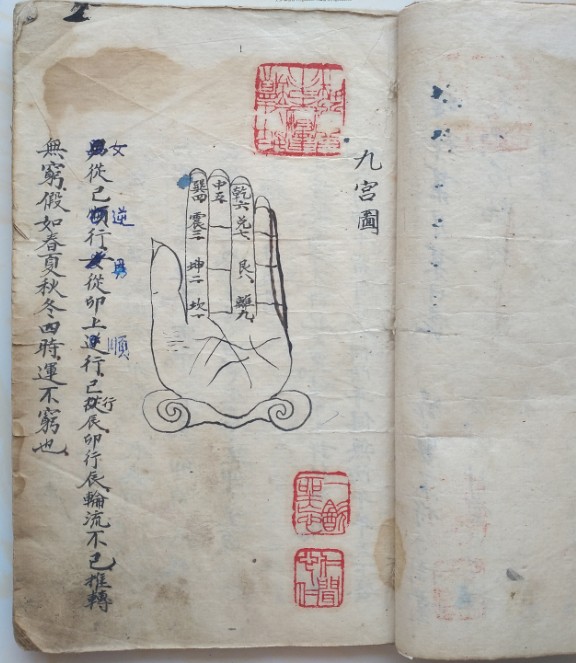 九宮圖
乾六
兌七
艮八
離九
中五
巽四
震三
坤二
坎一
女逆男順
從巳順行女從卯上逆行巳從行辰卯行辰輪流不已推轉
無窮假如春夏秋冬四時運不窮也